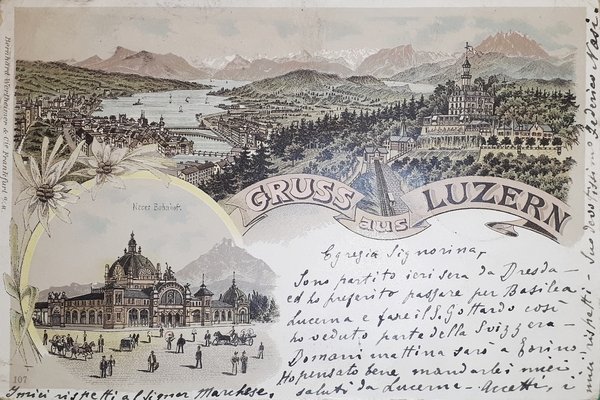 GRUSS aus LUZERN
Neuer Bahnhof.
107
Egregia Signorina,
Sono partito ieri sera da Dresda
ed ho preferito passare per Basilea
Lucerna e fare il S. Gottardo così
ho veduto parte della Svizzera –
Domani mattina sarò a Torino.
Ho pensato bene mandarle i miei
saluti da Lucerna – Accetti, i
miei rispetti – Suo devotissimo Federico Nasi.
I miei rispetti al Signor Marchese.